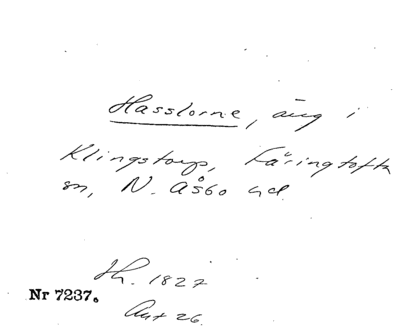 Hasslorne, äng i
Klingstorp, Färingtofta
sn, N. Åsbo hd.
Lh. 1827
Nr 7237.
Akt 26.